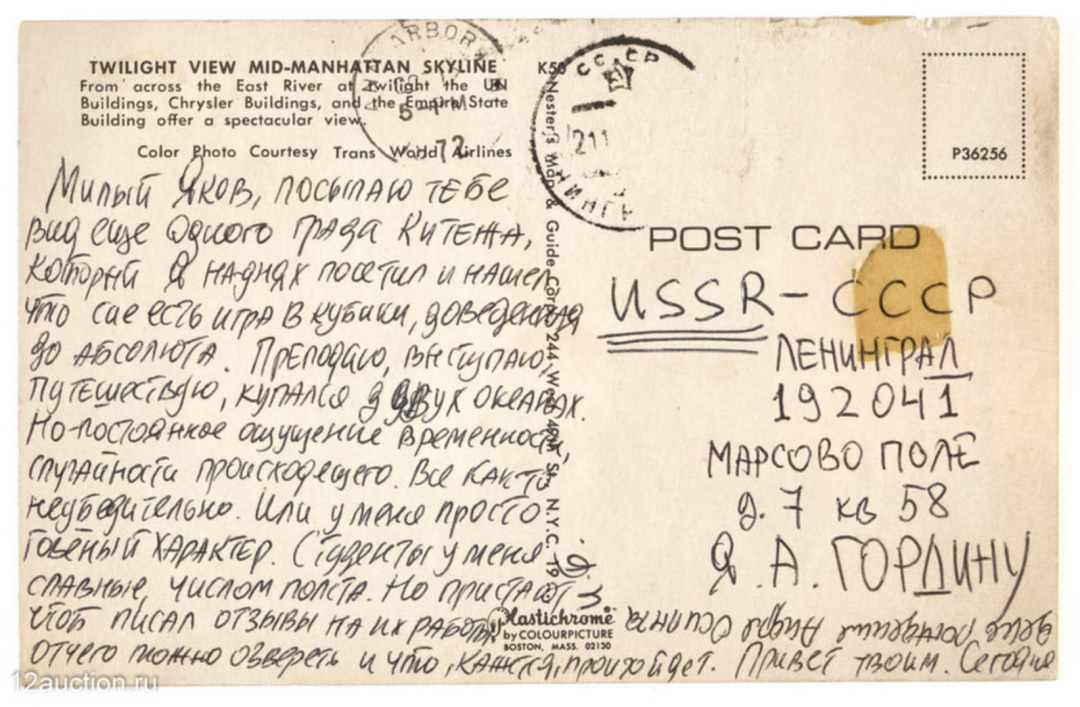 TWILIGHT VIEW MID-MANHATTAN SKYLINE
From across the East River at twilight the UN
Buildings, Chrysler Buildings, and the Empire State
Building offer a spectacular view.
Color Photo Courtesy Trans World Airlines
Милый Яков, посылаю тебе
вид еще одного града Китежа,
который я на днях посетил и нашел
что сие есть игра в кубики, доведенная
до абсолюта. Преподаю, выступаю,
путешествую, купался в двух океанах.
Но постоянное ощущение временности,
случайности происходящего. Все как-то
неубедительно. Или у меня просто
говёный характер. Студенты у меня
славные, числом полста. Но пристают
чтоб писал отзывы на их работы,
отчего можно озвереть и что, кажется, произойдет. Привет твоим. Сегодня
день рождения Андрея Осипыча
K50
Nester's Map & Guide Corp. 244 West 49th St. N.Y.C. 19
ARBOR
5 PM
72
СССР
211
P36256
POST CARD
USSR - СССР
ЛЕНИНГРАД
192041
МАРСОВО ПОЛЕ
д. 7 кв 58
Я. А. ГОРДИНУ
Plastichrome
by COLOURPICTURE
BOSTON, MASS. 02130
12auction.ru